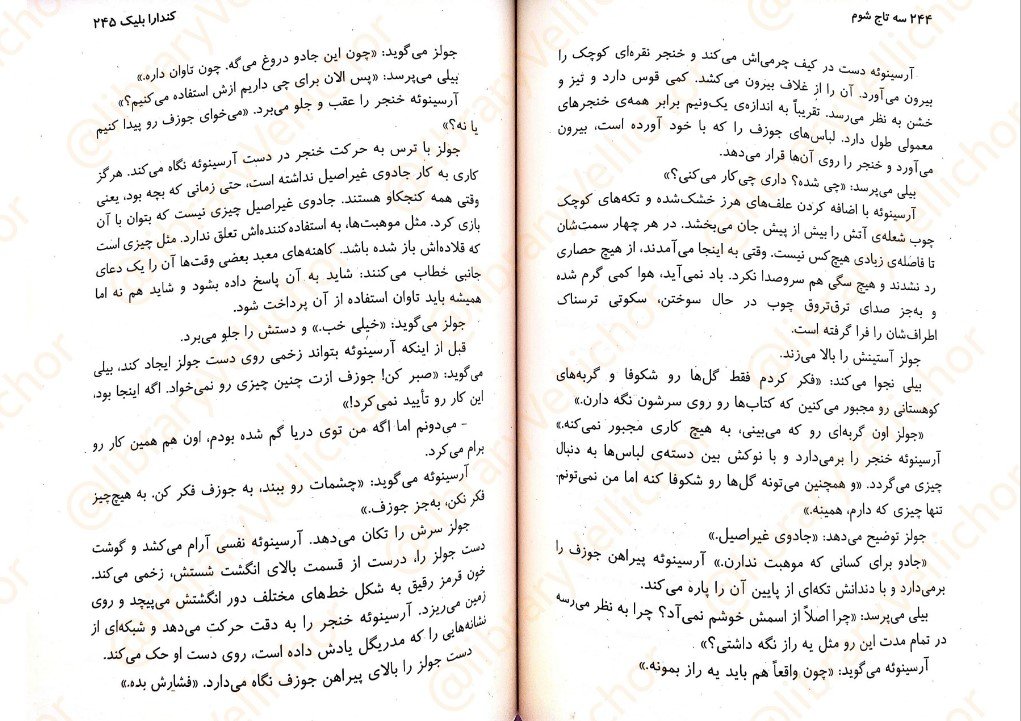 ۲۴۴ سه تاج شوم
آرسینوئه دست در کیف چرمی‌اش می‌کند و خنجر نقره‌ای کوچک را
بیرون می‌آورد. آن را از غلاف بیرون می‌کشد. کمی قوس دارد و تیز و
خشن به نظر می‌رسد. تقریباً به اندازه‌ی یک‌ونیم برابر همه‌ی خنجرهای
معمولی طول دارد. لباس‌های جوزف را که با خود آورده است، بیرون
می‌آورد و خنجر را روی آن‌ها قرار می‌دهد.
بیلی می‌پرسد: «چی شده؟ داری چی‌کار می‌کنی؟»
آرسینوئه با اضافه کردن علف‌های هرز خشک‌شده و تکه‌های کوچک
چوب شعله‌ی آتش را بیش از پیش جان می‌بخشد. در هر چهار سمت‌شان
تا فاصله‌ی زیادی هیچ‌کس نیست. وقتی به اینجا می‌آمدند، از هیچ حصاری
رد نشدند و هیچ سگی هم سروصدا نکرد. باد نمی‌آید، هوا کمی گرم شده
و به‌جز صدای ترق‌تروق چوب در حال سوختن، سکوتی ترسناک
اطراف‌شان را فرا گرفته است.
جولز آستینش را بالا می‌زند.
بیلی نجوا می‌کند: «فکر کردم فقط گل‌ها رو شکوفا و گربه‌های
کوهستانی رو مجبور می‌کنین که کتاب‌ها رو روی سرشون نگه دارن.»
«جولز اون گربه‌ای رو که می‌بینی، به هیچ کاری مجبور نمی‌کنه.»
آرسینوئه خنجر را برمی‌دارد و با نوکش بین دسته‌ی لباس‌ها به دنبال
چیزی می‌گردد. «و همچنین می‌تونه گل‌ها رو شکوفا کنه اما من نمی‌تونم.
تنها چیزی که دارم، همینه.»
جولز توضیح می‌دهد: «جادوی غیراصیل.»
«جادو برای کسانی که موهبت ندارن.» آرسینوئه پیراهن جوزف را
برمی‌دارد و با دندانش تکه‌ای از پایین آن را پاره می‌کند.
بیلی می‌پرسد: «چرا اصلاً از اسمش خوشم نمی‌آد؟ چرا به نظر می‌رسه
در تمام مدت این رو مثل یه راز نگه داشتی؟»
آرسینوئه می‌گوید: «چون واقعاً هم باید یه راز بمونه.»
کندارا بلیک ۲۴۵
جولز می‌گوید: «چون این جادو دروغ می‌گه. چون تاوان داره.»
بیلی می‌پرسد: «پس الان برای چی داریم ازش استفاده می‌کنیم؟»
آرسینوئه خنجر را عقب و جلو می‌برد. «می‌خوای جوزف رو پیدا کنیم
یا نه؟»
جولز با ترس به حرکت خنجر در دست آرسینوئه نگاه می‌کند. هرگز
کاری به کار جادوی غیراصیل نداشته است، حتی زمانی که بچه بود، یعنی
وقتی همه کنجکاو هستند. جادوی غیراصیل چیزی نیست که بتوان با آن
بازی کرد. مثل موهبت‌ها، به استفاده‌کننده‌اش تعلق ندارد. مثل چیزی است
که قلاده‌اش باز شده باشد. کاهنه‌های معبد بعضی وقت‌ها آن را یک دعای
جانبی خطاب می‌کنند: شاید به آن پاسخ داده بشود و شاید هم نه اما
همیشه باید تاوان استفاده از آن پرداخت شود.
جولز می‌گوید: «خیلی خب.» و دستش را جلو می‌برد.
قبل از اینکه آرسینوئه بتواند زخمی روی دست جولز ایجاد کند، بیلی
می‌گوید: «صبر کن! جوزف ازت چنین چیزی رو نمی‌خواد. اگه اینجا بود،
این کار رو تأیید نمی‌کرد!»
- می‌دونم اما اگه من توی دریا گم شده بودم، اون هم همین کار رو
برام می‌کرد.
آرسینوئه می‌گوید: «چشمات رو ببند، به جوزف فکر کن. به هیچ‌چیز
فکر نکن، به‌جز جوزف.»
جولز سرش را تکان می‌دهد. آرسینوئه نفسی آرام می‌کشد و گوشت
دست جولز را، درست از قسمت بالای انگشت شستش، زخمی می‌کند.
خون قرمز رقیق به شکل خط‌های مختلف دور انگشتش می‌پیچد و روی
زمین می‌ریزد. آرسینوئه خنجر را به دقت حرکت می‌دهد و شبکه‌ای از
نشانه‌هایی را که مدریگل یادش داده است، روی دست او حک می‌کند.
دست جولز را بالای پیراهن جوزف نگاه می‌دارد. «فشارش بده.»
@libraryVellichor